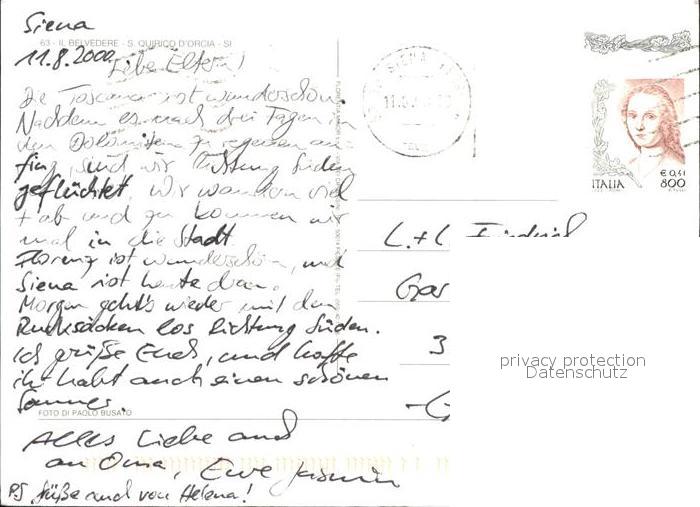 Siena
63 - IL BELVEDERE - S. QUIRICO D'ORCIA - SI
11.8.2000
Liebe Eltern!
Die Toscana ist wunderschön.
Nachdem es nach drei Tagen in
den Dolomiten zu regnen an-
fing, sind wir Richtung Süden
geflüchtet. Wir wandern viel
+ ab und zu kommen wir
mal in die Stadt.
Florenz ist wunderschön, und
Siena ist heute dran.
Morgen geht's wieder mit den
Rucksäcken los Richtung Süden.
Ich grüße Euch, und hoffe
ihr habt auch einen schönen
Sommer.
FOTO DI PAOLO BUSATO
Alles Liebe auch
an Oma, Eure Jasmin
PS Grüße auch von Helena!
SIENA
ITALIA
€ 0,41
800
L. + L.
Gar
3
privacy protection
Datenschutz